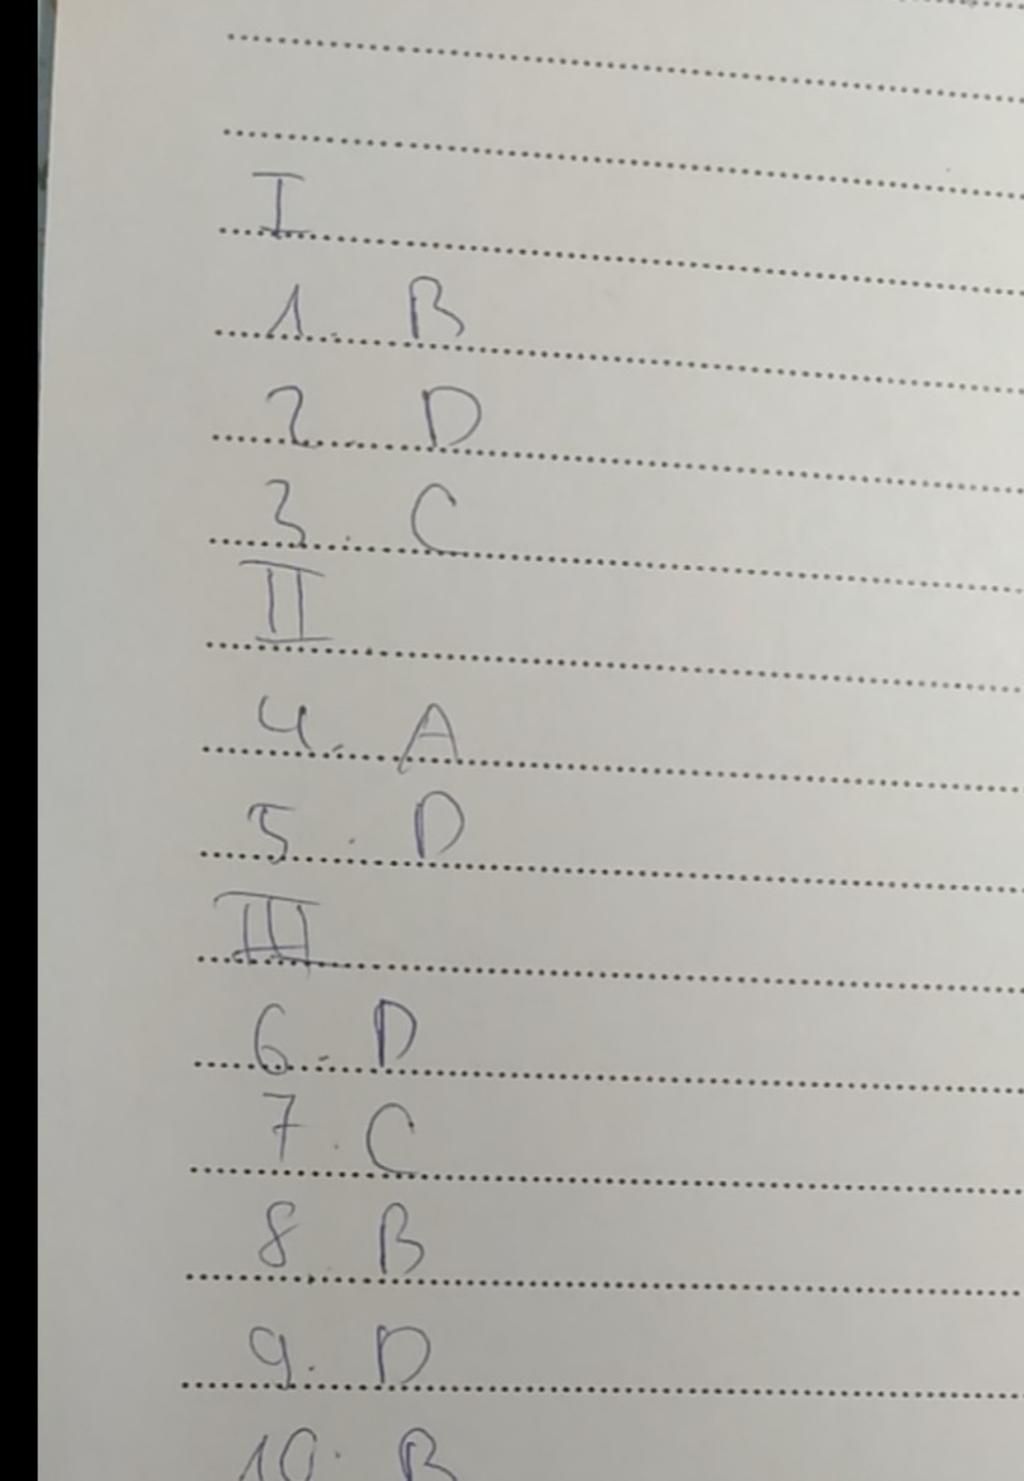 I
1. B
2. D
3. C
II
4. A
5. D
III
6. D
7. C
8. B
9. D
10. B